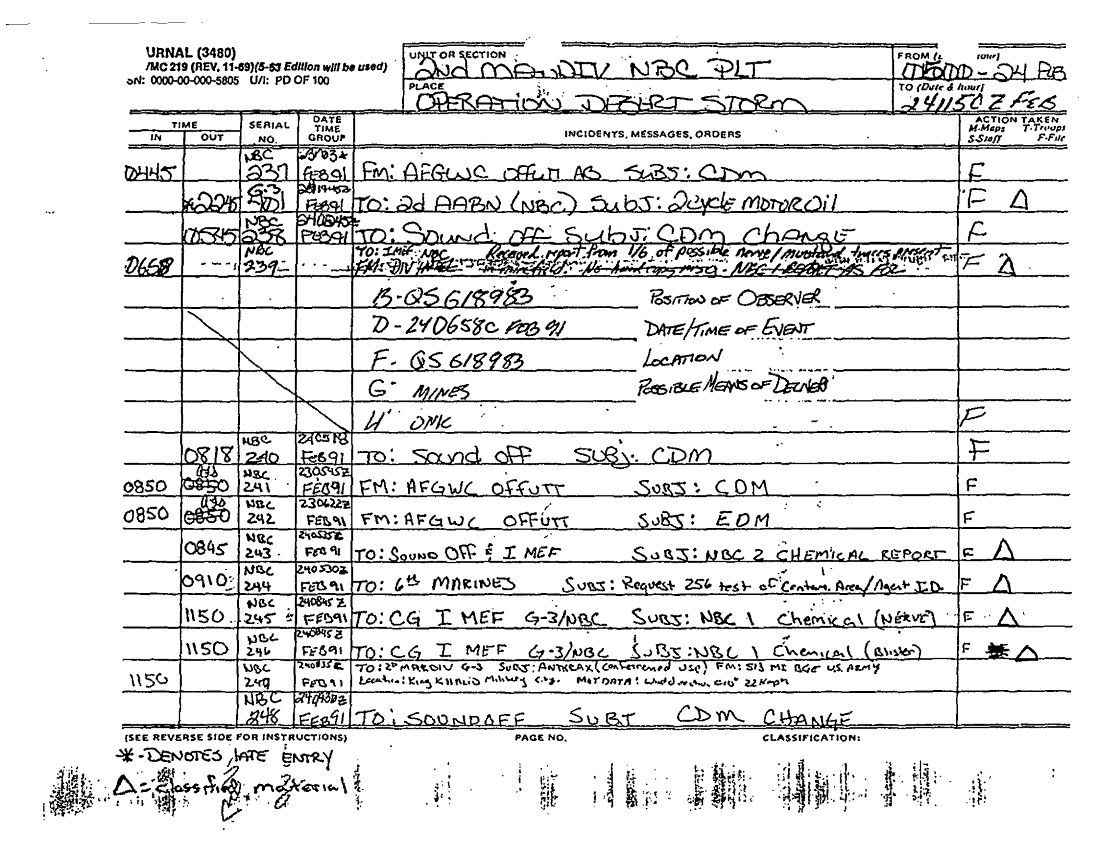 URNAL (3480)
/MC 219 (REV. 11-69)(5-63 Edition will be used)
SN: 0000-00-000-5805 U/I: PD OF 100
UNIT OR SECTION
2nd MARDIV NBC PLT
PLACE
OPERATION DESERT STORM
FROM
24 FEB
TO (Date & hour)
241150Z FEB
TIME
IN OUT
SERIAL NO.
DATE TIME GROUP
INCIDENTS, MESSAGES, ORDERS
ACTION TAKEN
M-Maps T-Troops
S-Staff F-File
0445 NBC 237 FEB91 FM: AFGWC OFFUTT AB SUBJ: CDM F
*2245 G-3 FEB91 TO: 2d AABN (NBC) SUBJ: 2cycle MOTOR Oil F Δ
0545 NBC 238 240245Z FEB91 TO: Sound off SUBJ: CDM CHANGE F
0658 NBC 239 TO: IMEF NBC Received report from 1/6 of possible nerve/mustard F Δ
FM: DIV
B-QS618983 POSITION OF OBSERVER
D-240658C FEB 91 DATE/TIME OF EVENT
F- QS 618983 LOCATION
G- MINES POSSIBLE MEANS OF DELIVER
H- UNK F
0818 NBC 240 FEB91 TO: Sound off SUBJ: CDM F
0850 0850 NBC 241 230545Z FEB91 FM: AFGWC OFFUTT SUBJ: CDM F
0850 0850 NBC 242 230622Z FEB91 FM: AFGWC OFFUTT SUBJ: EDM F
0845 NBC 243 240535Z FEB 91 TO: SOUND OFF & I MEF SUBJ: NBC 2 CHEMICAL REPORT F Δ
0910 NBC 244 240530Z FEB 91 TO: 6th MARINES SUBJ: Request 256 test of Contam. Area/Agent I.D. F Δ
1150 NBC 245 240845Z FEB91 TO: CG I MEF G-3/NBC SUBJ: NBC 1 Chemical (NERVE) F Δ
1150 NBC 246 240845Z FEB91 TO: CG I MEF G-3/NBC SUBJ: NBC 1 Chemical (Blister) F Δ
1150 NBC FEB91 TO: 2d MARDIV G-3 SUBJ: ANTHRAX (Conferemed Use) FM: 513 MI BGE US. ARMY
Location: King KHALID Military City. MET DATA:
NBC 248 FEB91 TO: SOUNDOFF SUBJ CDM CHANGE
(SEE REVERSE SIDE FOR INSTRUCTIONS) PAGE NO. CLASSIFICATION:
*-DENOTES LATE ENTRY
Δ = classified material